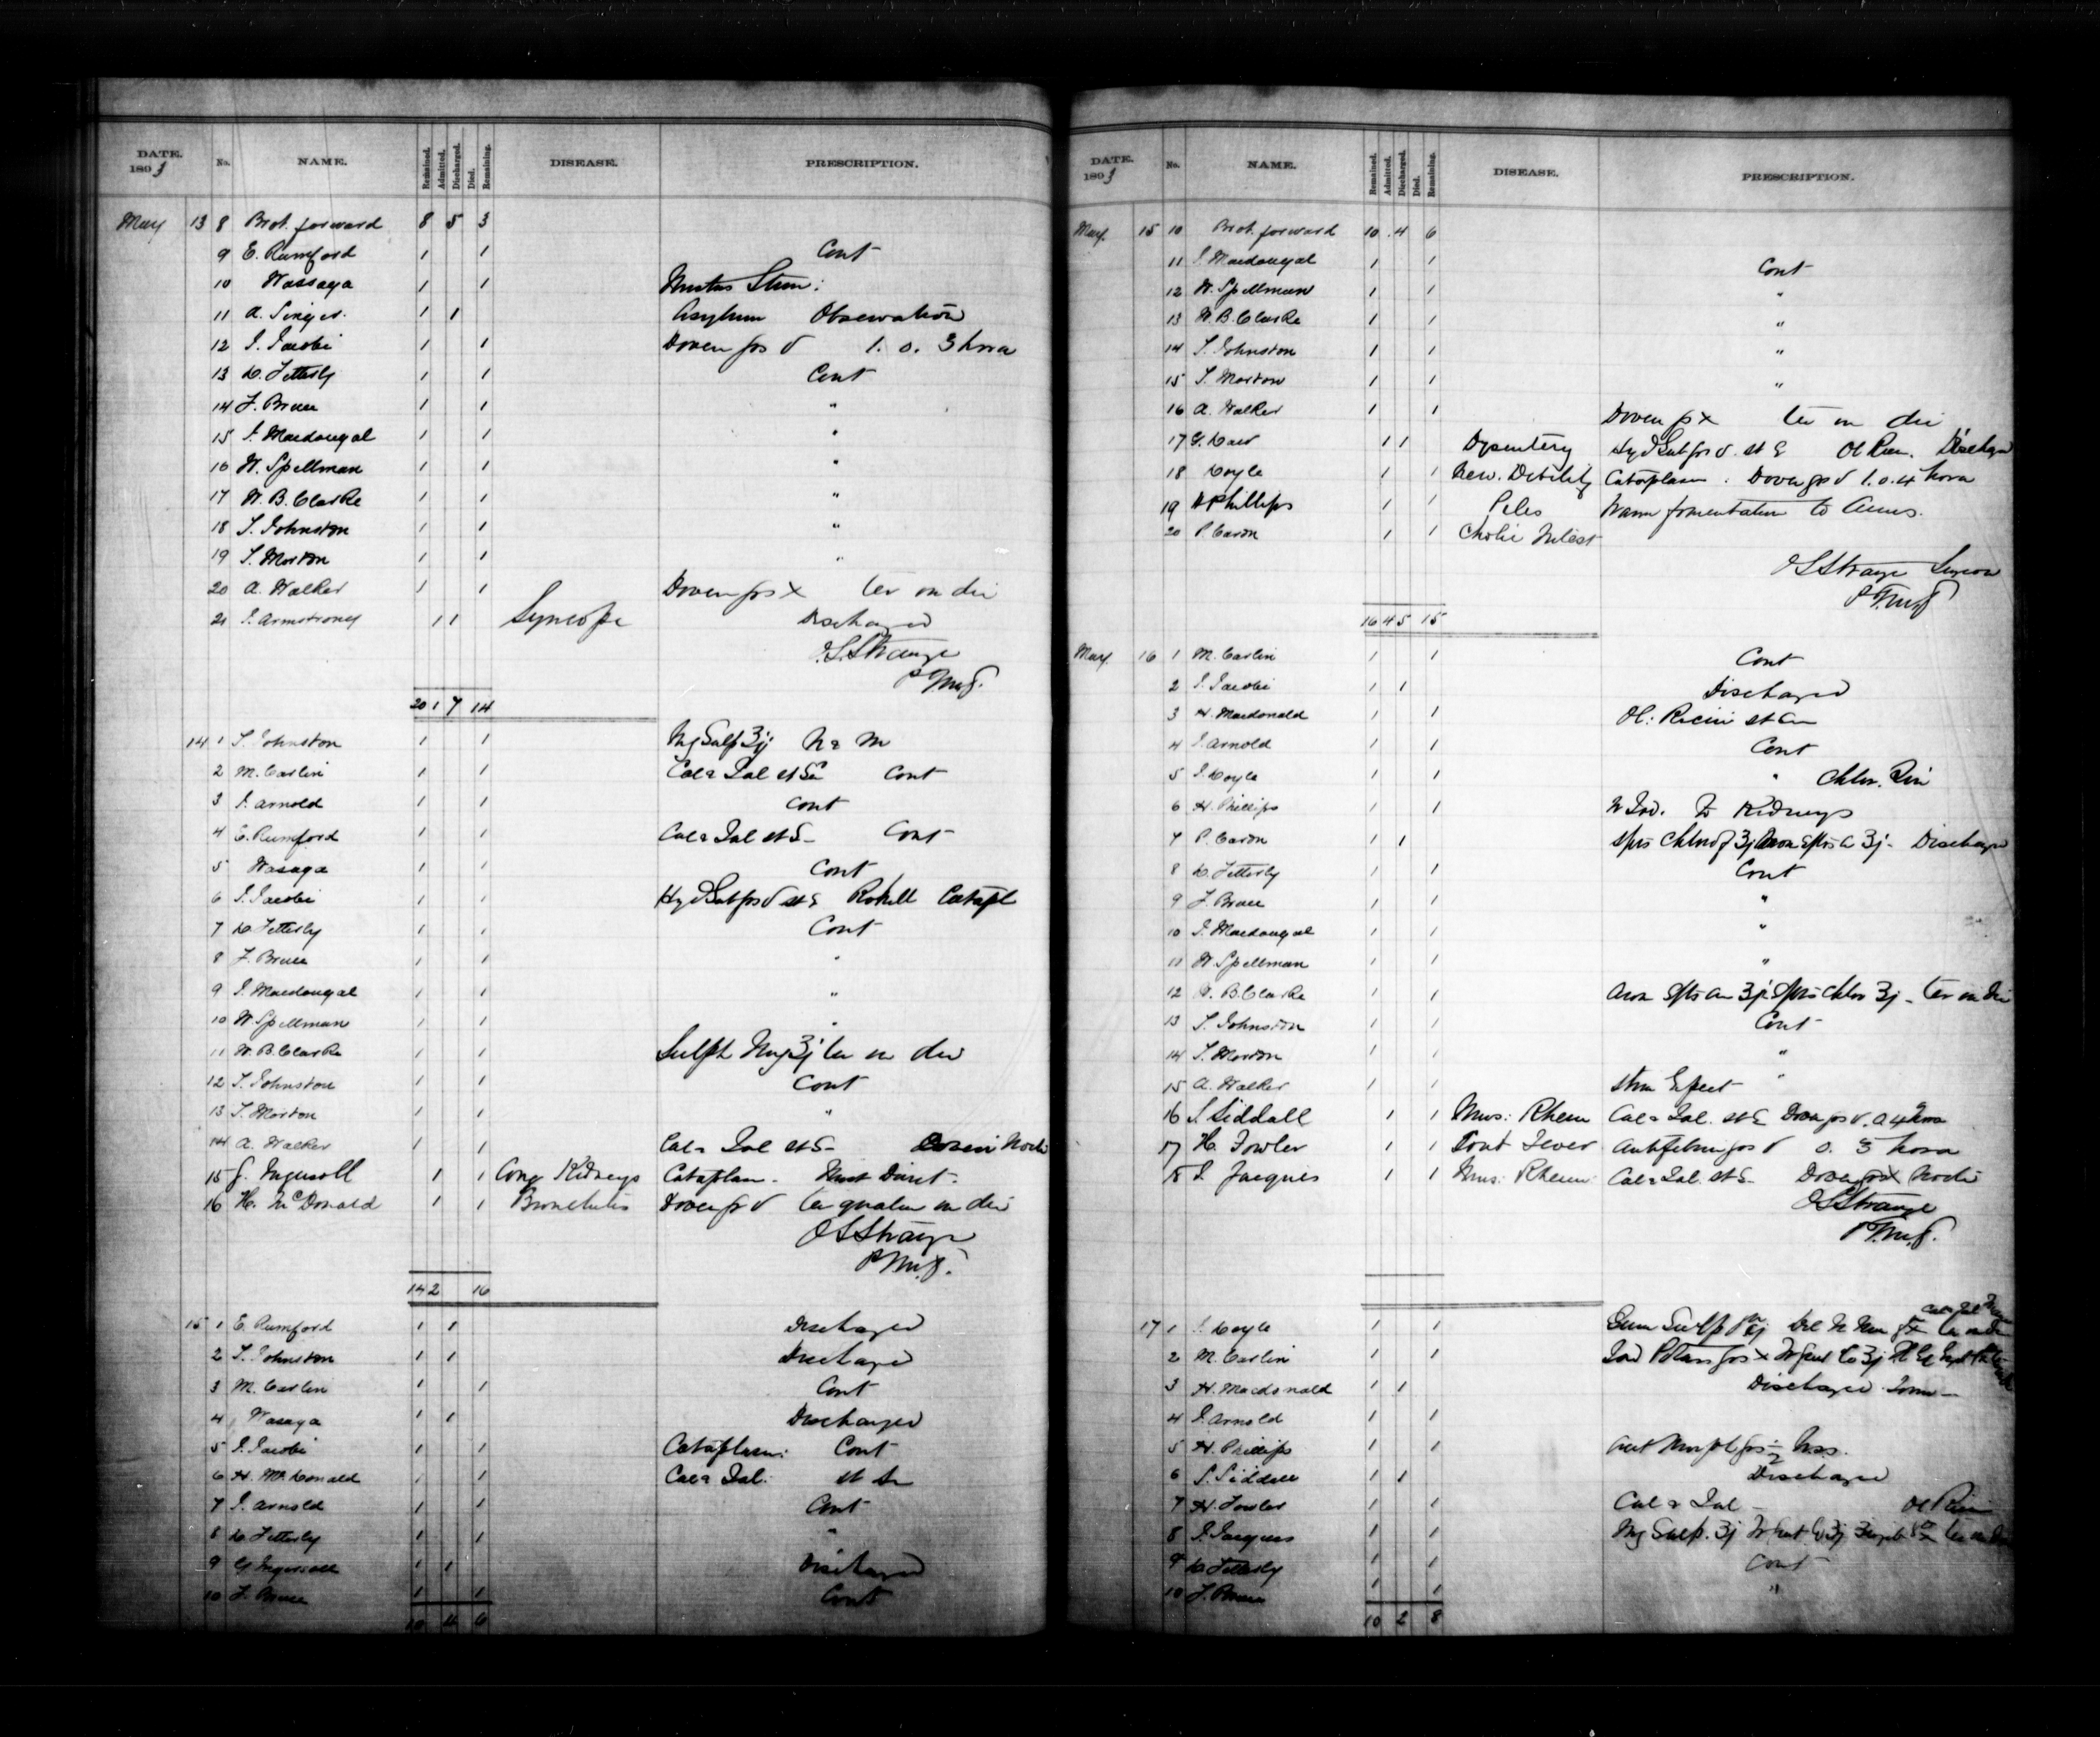 DATE. 1893 No. NAME. Remained. Admitted. Discharged. Died. Remaining. DISEASE. PRESCRIPTION.
May 13 8 Brot. forward 8 5 3
9 E. Rumford 1 1 Cont
10 Wassaga 1 1
11 A. Singer. 1 1 Asylum Observation
12 J. Jacobi 1 1 Dover grs V 1. o. 3 hora
13 D. Fetterly 1 1 Cont
14 F. Bruce 1 1 "
15 J. Macdougal 1 1 "
16 W. Spellman 1 1 "
17 W. B. Clarke 1 1 "
18 T. Johnston 1 1 "
19 T. Morton 1 1 "
20 A. Walker 1 1 Dover grs X ter in die
21 J. Armstrong 1 1 Syncope Discharged
O.S. Strange
20 1 7 14
14 1 T. Johnston 1 1 Mg Sulp ʒij
2 M. Carlin 1 1 Cal & Jal Cont
3 J. Arnold 1 1 Cont
4 E. Rumford 1 1 Cal & Jal st S Cont
5 Wasaga 1 1 Cont
6 J. Jacobi 1 1 Hyd Sub grs V st S Catapl
7 D. Fetterly 1 1 Cont
8 F. Bruce 1 1 "
9 J. Macdougal 1 1 "
10 W. Spellman 1 1 "
11 W. B. Clarke 1 1 Sulph Mg ʒj ter in die
12 T. Johnston 1 1 Cont
13 T. Morton 1 1 "
14 A. Walker 1 1 Cal & Jal st S
15 G. Ingersoll 1 1 Cong Kidneys Cataplasm. Diuret.
16 H. McDonald 1 1 Bronchitis Dover gr V quater in die
O S Strange
14 2 16
15 1 E. Rumford 1 1 Discharged
2 T. Johnston 1 1 Discharged
3 M. Carlin 1 1 Cont
4 Wasaga 1 1 Discharged
5 J. Jacobi 1 1 Cataplasm: Cont
6 H. McDonald 1 1 Cal & Jal.
7 J. Arnold 1 1 Cont
8 D. Fetterly 1 1 "
9 G Ingersoll 1 1 Discharged
10 F. Bruce 1 1 Cont
10 4 6
DATE. 1893 No. NAME. Remained. Admitted. Discharged. Died. Remaining. DISEASE. PRESCRIPTION.
May 15 10 Brot. forward 10 4 6
11 J. Macdougal 1 1 Cont
12 W. Spellman 1 1 "
13 W. B. Clarke 1 1 "
14 T. Johnston 1 1 "
15 T. Morton 1 1 "
16 A. Walker 1 1 Dover gr X ter in die
17 1 1 Dysentery Hyd Sub grs V. st S Ol Ricin. Discharged
18 Coyle 1 1 Debility Cataplasm. Dover grs V 1. o. 4 hora
19 H Phillips 1 1 Piles Warm fomentation to Anus.
20 P. Caron 1 1
O S Strange Surgeon
16 4 5 15
May 16 1 M. Carlin 1 1 Cont
2 J. Jacobi 1 1 Discharged
3 H. Macdonald 1 1 Ol: Ricini
4 J. Arnold 1 1 Cont
5 J. Coyle 1 1 "
6 H. Phillips 1 1 to Kidneys
7 P. Caron 1 1 Discharged
8 D. Fetterly 1 Cont
9 F. Bruce 1 1 "
10 J. Macdougal 1 1 "
11 W. Spellman 1 1 "
12 W. B. Clarke 1 1 ter in die
13 T. Johnston 1 1 Cont
14 T. Morton 1 1 "
15 A. Walker 1 1 "
16 S. Siddall 1 1 Mus: Rheum Cal & Jal. st S Dover grs V. o 4 hora
17 H. Fowler 1 1 Cont Fever Antifebrin grs V o. 3 hora
18 J. Jacques 1 1 Mus: Rheum Cal & Jal. st S Dover grs X Nocte
O S Strange
17 1 J. Coyle 1 1
2 M. Carlin 1 1
3 H. Macdonald 1 1 Discharged
4 J. Arnold 1 1
5 H. Phillips 1 1
6 S. Siddall 1 1 Discharged
7 H. Fowler 1 1 Cal & Jal Ol Ricin
8 J. Jacques 1 1 Mg Sulp. ʒj
9 D. Fetterly 1 1 Cont
10 F. Bruce 1 1 "
10 2 8